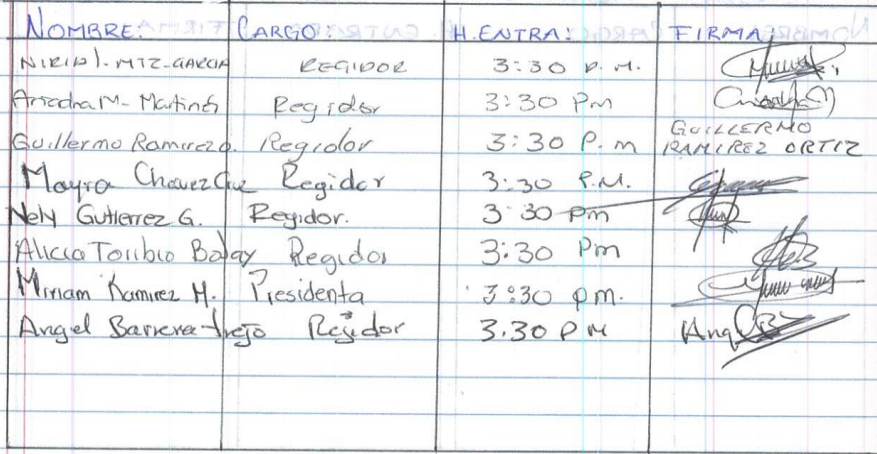 NOMBRE: CARGO: H. ENTRA: FIRMA:
MTZ-GARCIA REGIDOR 3:30 P.M.
Ariadna M. Martínez Regidor 3:30 Pm
Guillermo Ramirez O. Regidor 3:30 P.m GUILLERMO
RAMIREZ ORTIZ
Mayra Chavez Cruz Regidor 3:30 P.M.
Nely Gutierrez G. Regidor. 3:30 pm
Alicia Toribio Regidor 3:30 Pm
Miriam Ramirez H. Presidenta 3:30 pm.
Angel Barrera trejo Regidor 3.30 PM